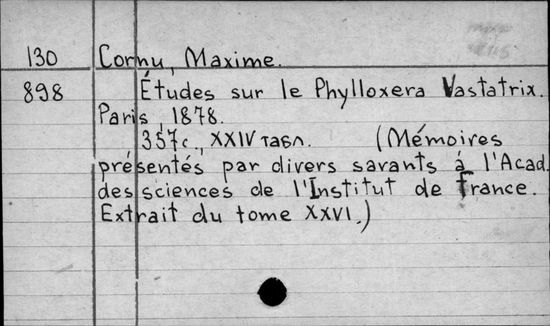 130 Cornu, Maxime.
898 Études sur le Phylloxera Vastatrix.
Paris, 1878.
357с., XXIV табл. (Mémoires
présentés par divers savants à l'Acad.
des sciences de l'Institut de France.
Extrait du tome XXVI.)